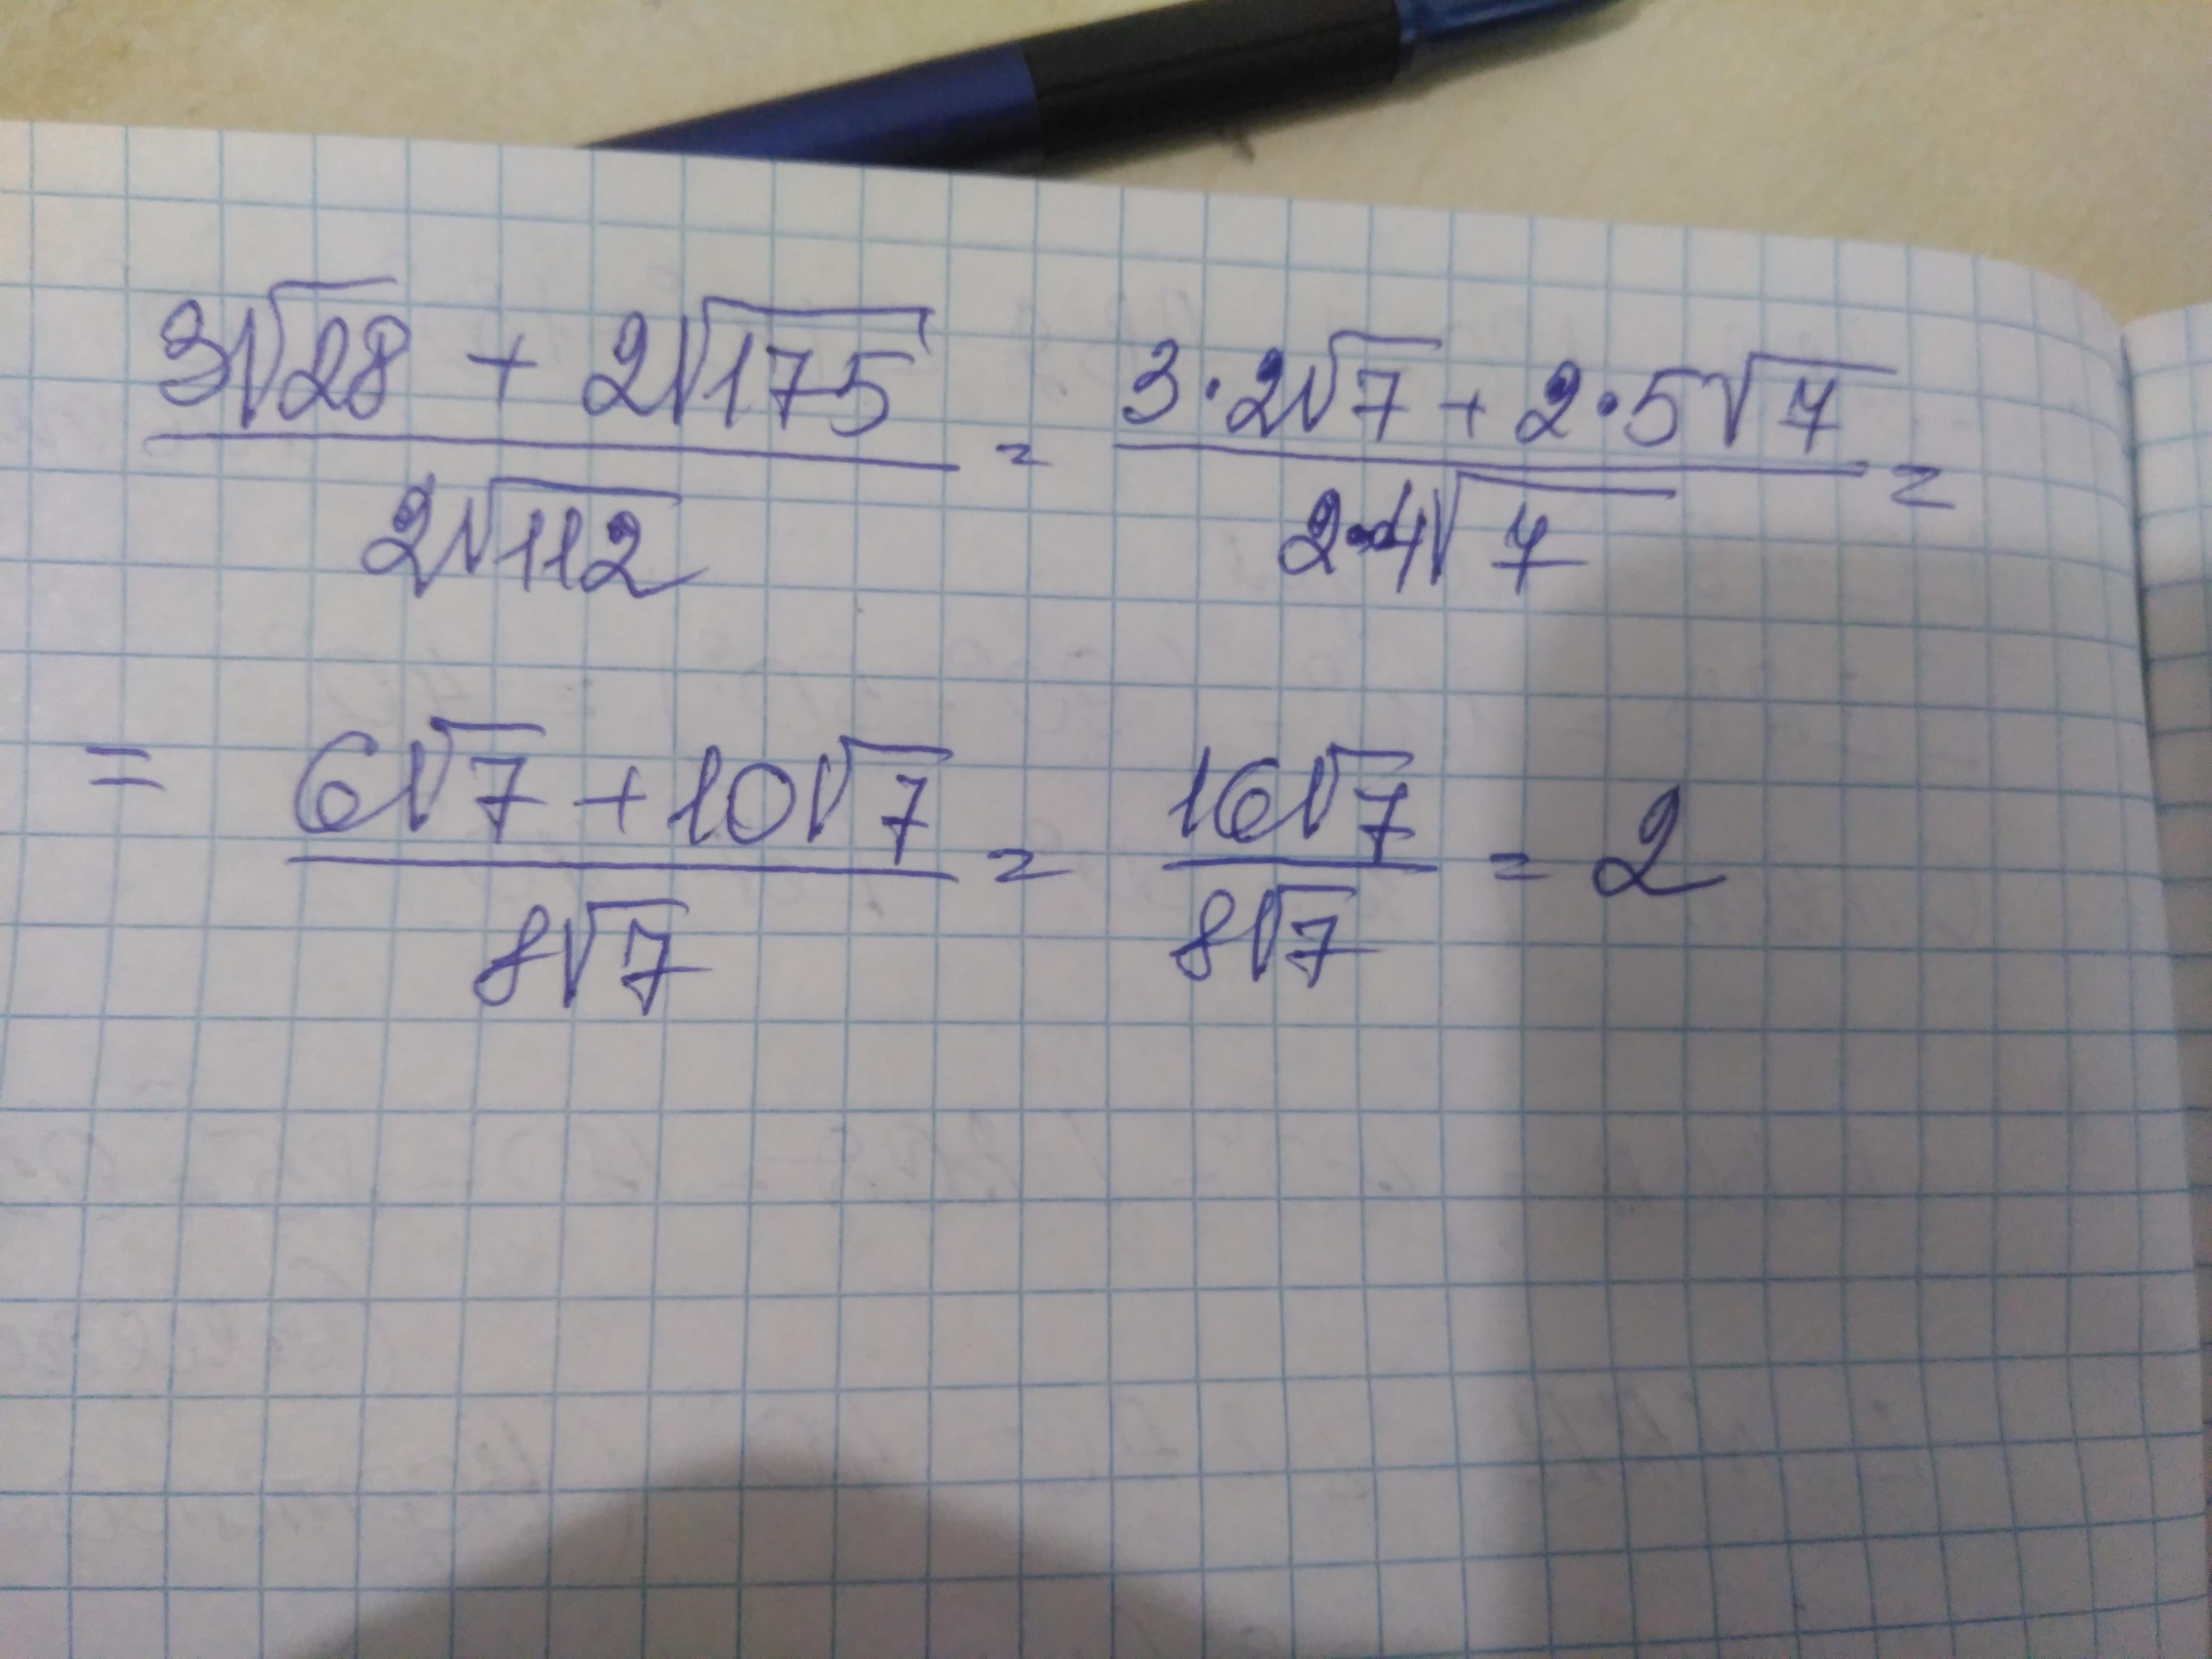 (3√28 + 2√175)/(2√112) = (3·2√7 + 2·5√7)/(2·4√7) =
= (6√7 + 10√7)/(8√7) = (16√7)/(8√7) = 2